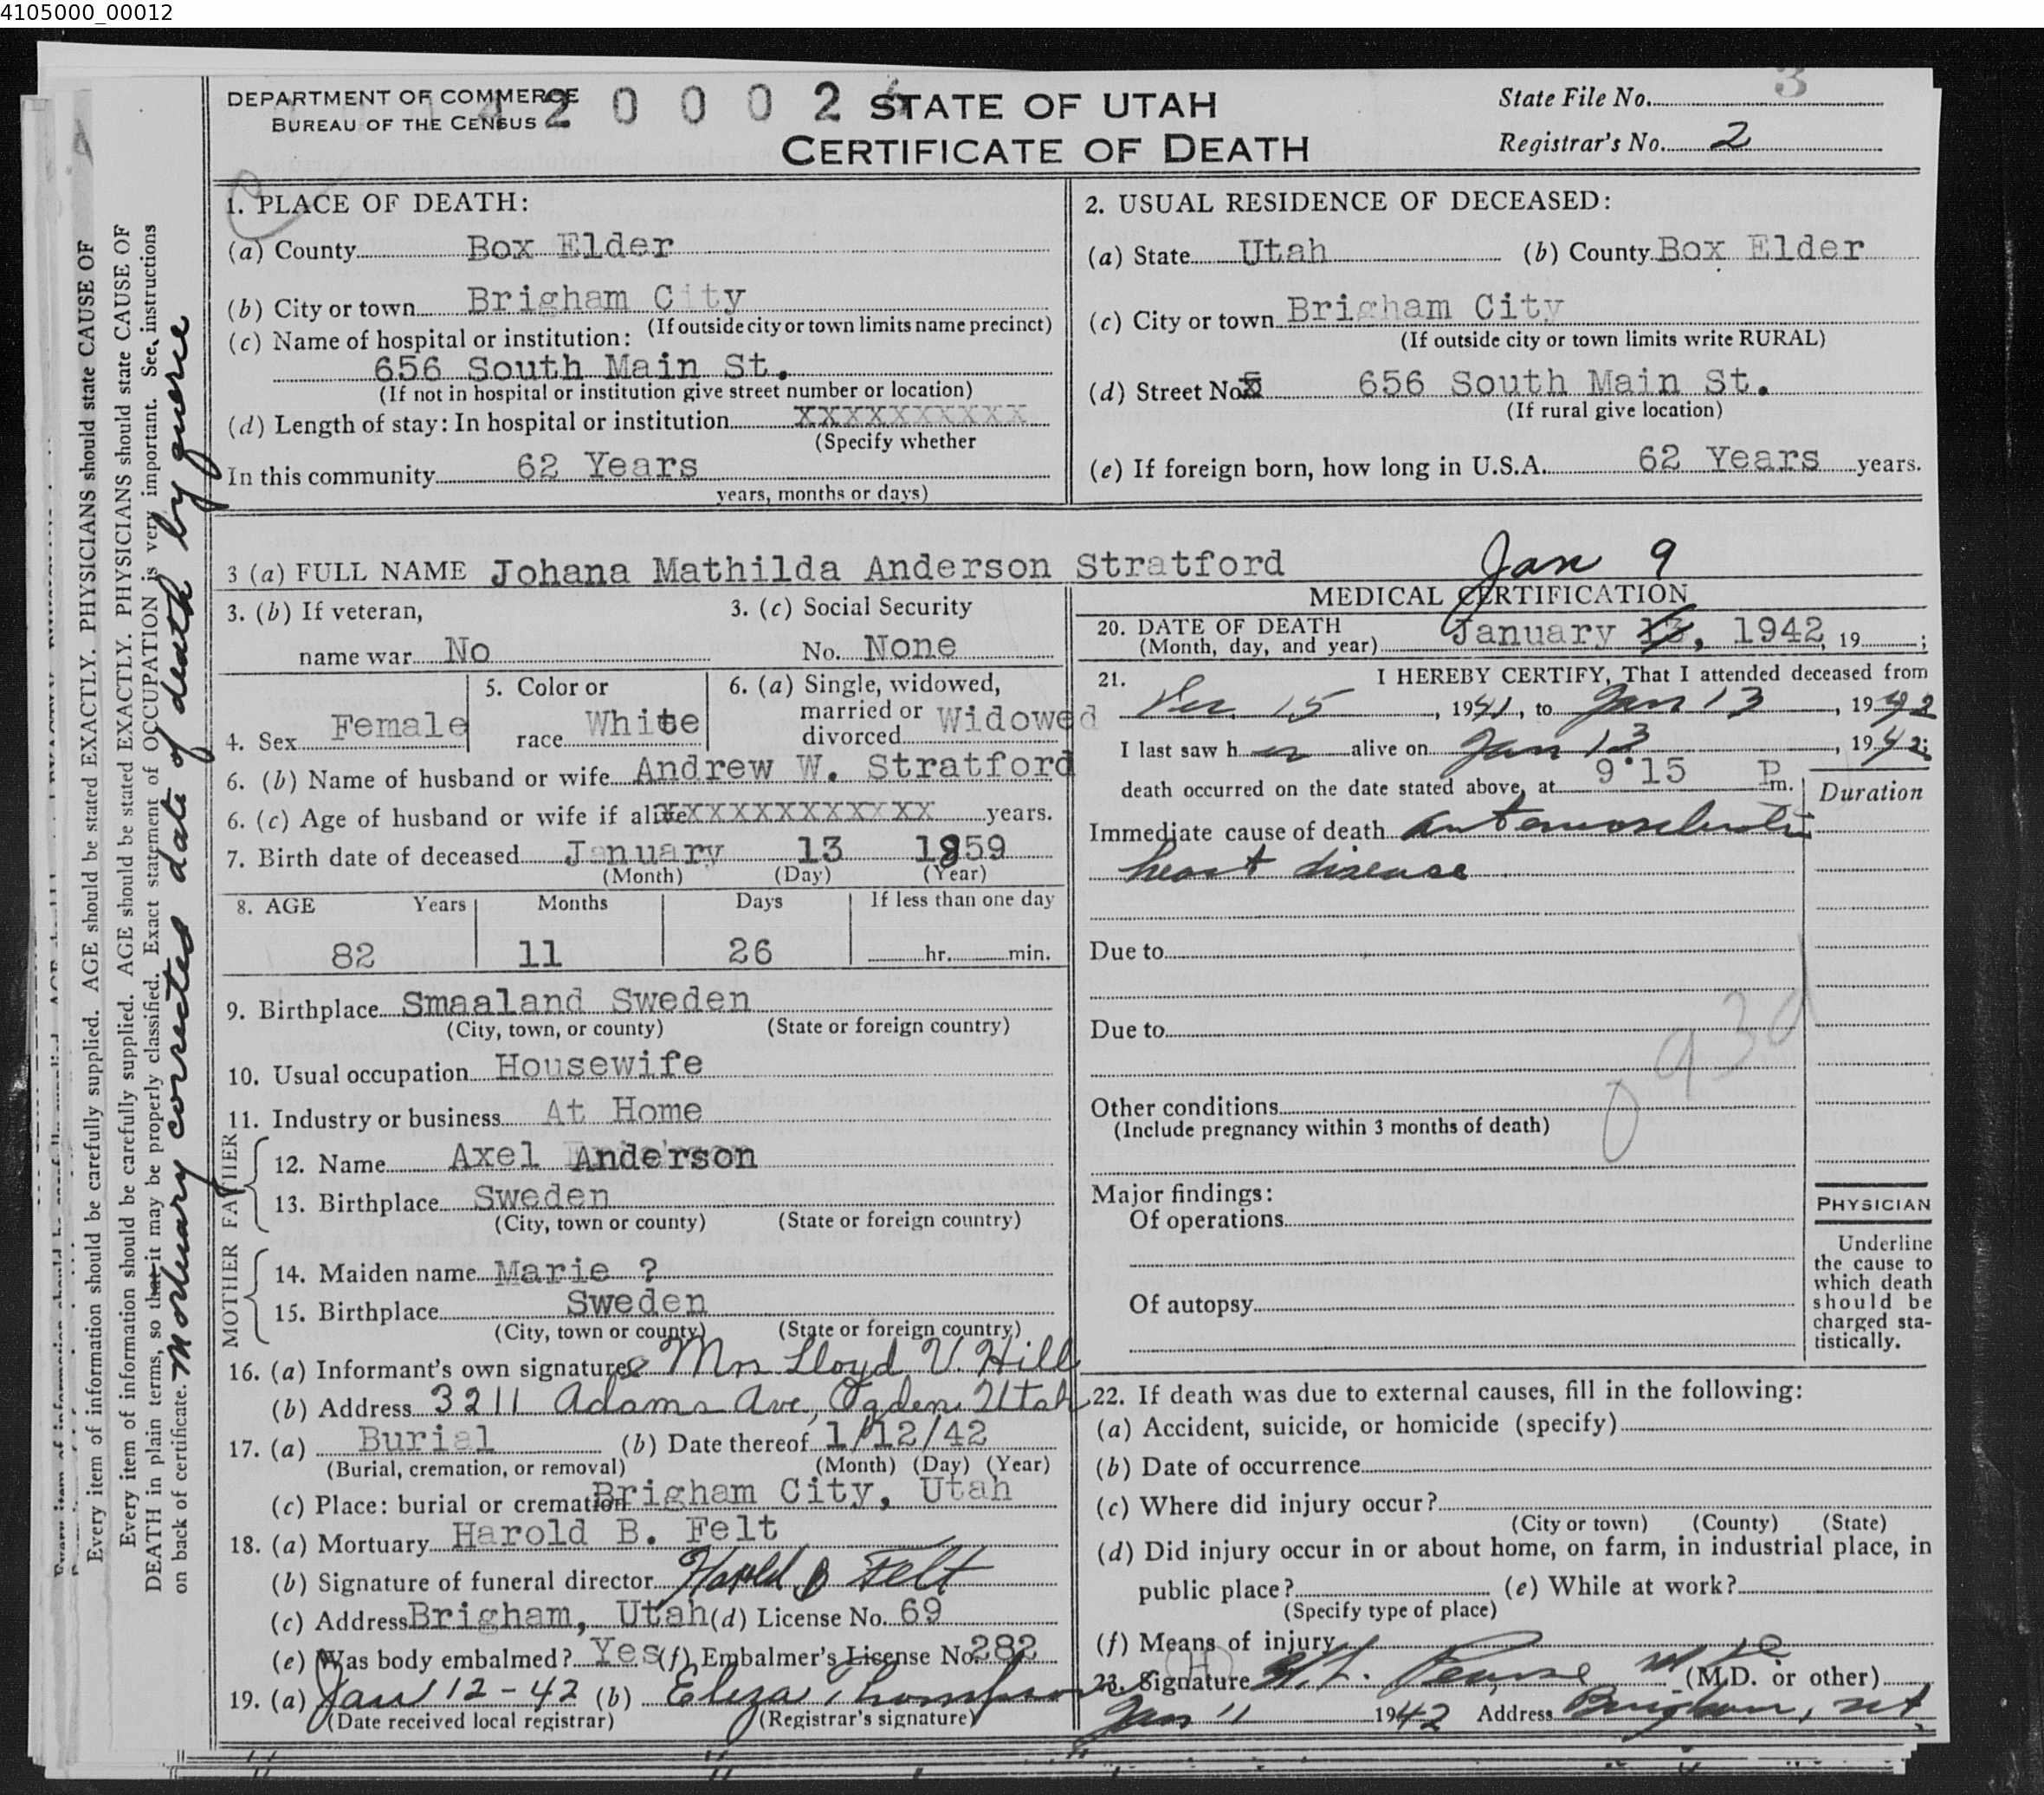 4105000_00012
DEPARTMENT OF COMMERCE
BUREAU OF THE CENSUS
STATE OF UTAH
CERTIFICATE OF DEATH
State File No. 3
Registrar's No. 2
1. PLACE OF DEATH:
(a) County Box Elder
(b) City or town Brigham City
(If outside city or town limits name precinct)
(c) Name of hospital or institution:
656 South Main St.
(If not in hospital or institution give street number or location)
(d) Length of stay: In hospital or institution XXXXXXXXXX
(Specify whether
In this community 62 Years
years, months or days)
2. USUAL RESIDENCE OF DECEASED:
(a) State Utah (b) County Box Elder
(c) City or town Brigham City
(If outside city or town limits write RURAL)
(d) Street No. 656 South Main St.
(If rural give location)
(e) If foreign born, how long in U.S.A. 62 Years years.
3 (a) FULL NAME Johana Mathilda Anderson Stratford
3. (b) If veteran,
name war No
3. (c) Social Security
No. None
4. Sex Female
5. Color or
race White
6. (a) Single, widowed,
married or
divorced Widowed
6. (b) Name of husband or wife Andrew W. Stratford
6. (c) Age of husband or wife if alive XXXXXXXXXXXX years.
7. Birth date of deceased January 13 1859
(Month) (Day) (Year)
8. AGE Years Months Days If less than one day
82 11 26 hr. min.
9. Birthplace Smaaland Sweden
(City, town, or county) (State or foreign country)
10. Usual occupation Housewife
11. Industry or business At Home
FATHER
12. Name Axel Anderson
13. Birthplace Sweden
(City, town or county) (State or foreign country)
MOTHER
14. Maiden name Marie ?
15. Birthplace Sweden
(City, town or county) (State or foreign country)
16. (a) Informant's own signature Mrs Lloyd V. Hill
(b) Address 3211 Adams Ave, Ogden, Utah
17. (a) Burial (b) Date thereof 1/12/42
(Burial, cremation, or removal) (Month) (Day) (Year)
(c) Place: burial or cremation Brigham City, Utah
18. (a) Mortuary Harold B. Felt
(b) Signature of funeral director Harold B Felt
(c) Address Brigham, Utah (d) License No. 69
(e) Was body embalmed? Yes (f) Embalmer's License No. 282
19. (a) Jan 12-42 (b) Eliza Thompson
(Date received local registrar) (Registrar's signature)
Jan 9
MEDICAL CERTIFICATION
20. DATE OF DEATH
(Month, day, and year) January 13, 1942, 19 ;
21. I HEREBY CERTIFY, That I attended deceased from
Dec. 15, 1941, to Jan 13, 1942
I last saw her alive on Jan 13, 1942;
death occurred on the date stated above, at 9:15 P m.
Duration
Immediate cause of death
heart disease
Due to
Due to
93d
Other conditions
(Include pregnancy within 3 months of death)
Major findings:
Of operations
Of autopsy
PHYSICIAN
Underline
the cause to
which death
should be
charged sta-
tistically.
22. If death was due to external causes, fill in the following:
(a) Accident, suicide, or homicide (specify)
(b) Date of occurrence
(c) Where did injury occur?
(City or town) (County) (State)
(d) Did injury occur in or about home, on farm, in industrial place, in
public place? (e) While at work?
(Specify type of place)
(f) Means of injury
23. Signature (M.D. or other)
Jan 11 1942 Address Brigham, Ut.
Every item of information should be carefully supplied. AGE should be stated EXACTLY. PHYSICIANS should state CAUSE OF
Every item of information should be carefully supplied. AGE should be stated EXACTLY. PHYSICIANS should state CAUSE OF
DEATH in plain terms, so that it may be properly classified. Exact statement of OCCUPATION is very important. See instructions
on back of certificate.
Mortuary corrected date of death by querie